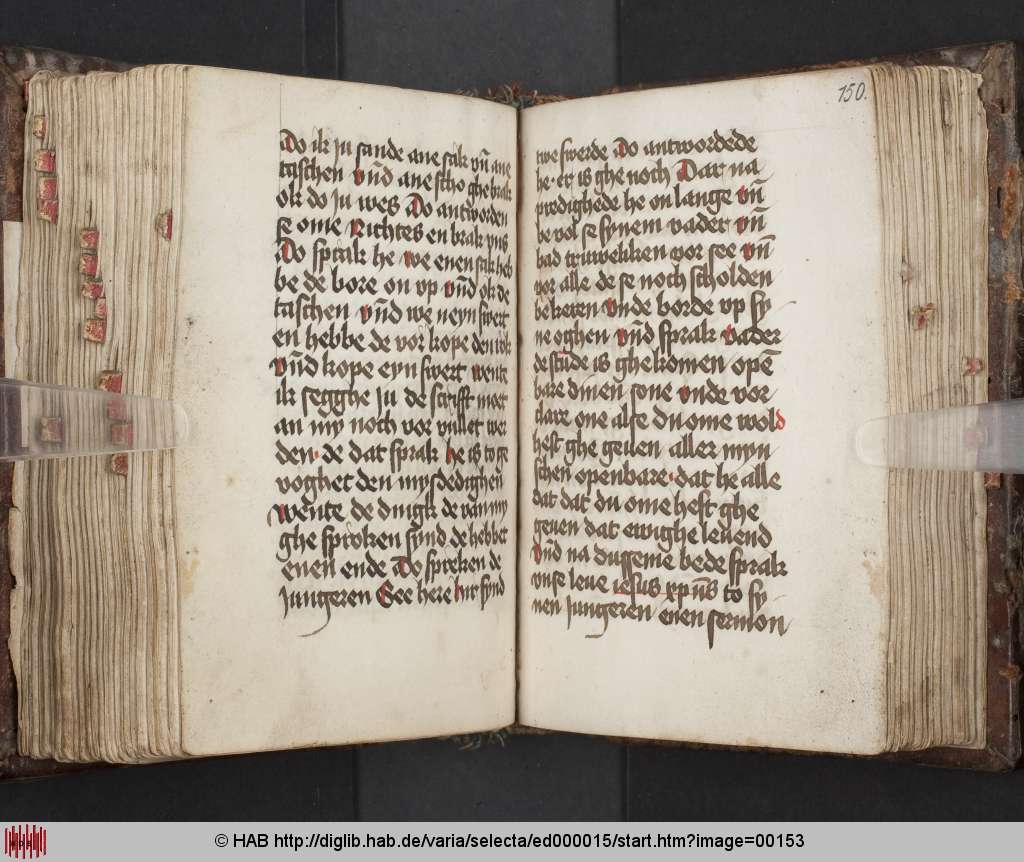 Do ik ju sande ane sak vn̄ ane
taschen vn̄d ane scho ghe brak
ok do ju wes Do antworden
se ome Nichtes en brak vns
Do sprak he we enen sak heb
be de bore on vp vn̄d ok de
taschen vn̄d we neyn swert
en hebbe de vor kope den rok
vn̄d kope eyn swert wente
ik segghe ju de scrifft mot
an my noch vor vullet wer
den · de dat sprak he is to ge
voghet den mysdedighen̄
wente de dingk de van my
ghe sproken synd de hebbet
enen ende Do spreken de
jungeren See here hir synd
150.
twe swerde Do antwordede
he · er is ghe noch Dar na
predighede he on lange vn̄
be vol se synem vader vn̄
bad truweliken vor see vn̄
vor alle de se noch scholden
be keren vnde borde vp sy
ne oghen vn̄d sprak vader
de stūde is ghe komen opē
bare dinen sone vnde vor
clare one alse du ome wold
hest ghe geuen aller myn
schen openbare · dat he alle
dat dat du ome hest ghe
geuen dat ewighe leuend
Vn̄d na dusseme bede sprak
vnse leue iesus xpūs to sy
nen jungeren enen sermon
© HAB http://diglib.hab.de/varia/selecta/ed000015/start.htm?image=00153